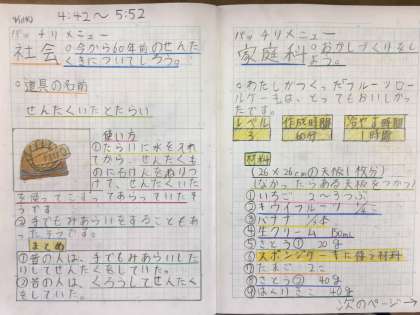 4:42〜5:52
バッチリメニュー
社会 ○今から60年前のせんた
くきについてしろう。
○道具の名前
せんたくいたとたらい
使い方
①たらいに水を入れ
てから、せんたくも
のにせっけんをぬりつ
けて、せんたくいた
を使ってこすってあらっていたそ
うです。
②手でもみあらいをすることもあ
ったそうです。
まとめ
①昔の人は、手でもみあらいした
りしてせんたくをしていた。
②昔の人は、くろうしてせんたく
をしていた。
バッチリメニュー
家庭科 ○おかしづくりをし
よう。
○わたしがつくったフルーツロー
ルケーキは、とってもおいしかっ
たです。
レベル 作成時間 冷やす時間
3 60分 1時間
材料
(26×26cmの天板1枚分)
(なかったらある天板をつかう)
①いちご 2〜3つぶ
②キウイフルーツ 1/2こ
③バナナ 1/2本
④生クリーム 150mL
⑤さとう① 20g
⑥スポンジケーキに使う材料
⑦たまご 2こ
⑧さとう② 40g
⑨はくりきこ 40g
次のページ→